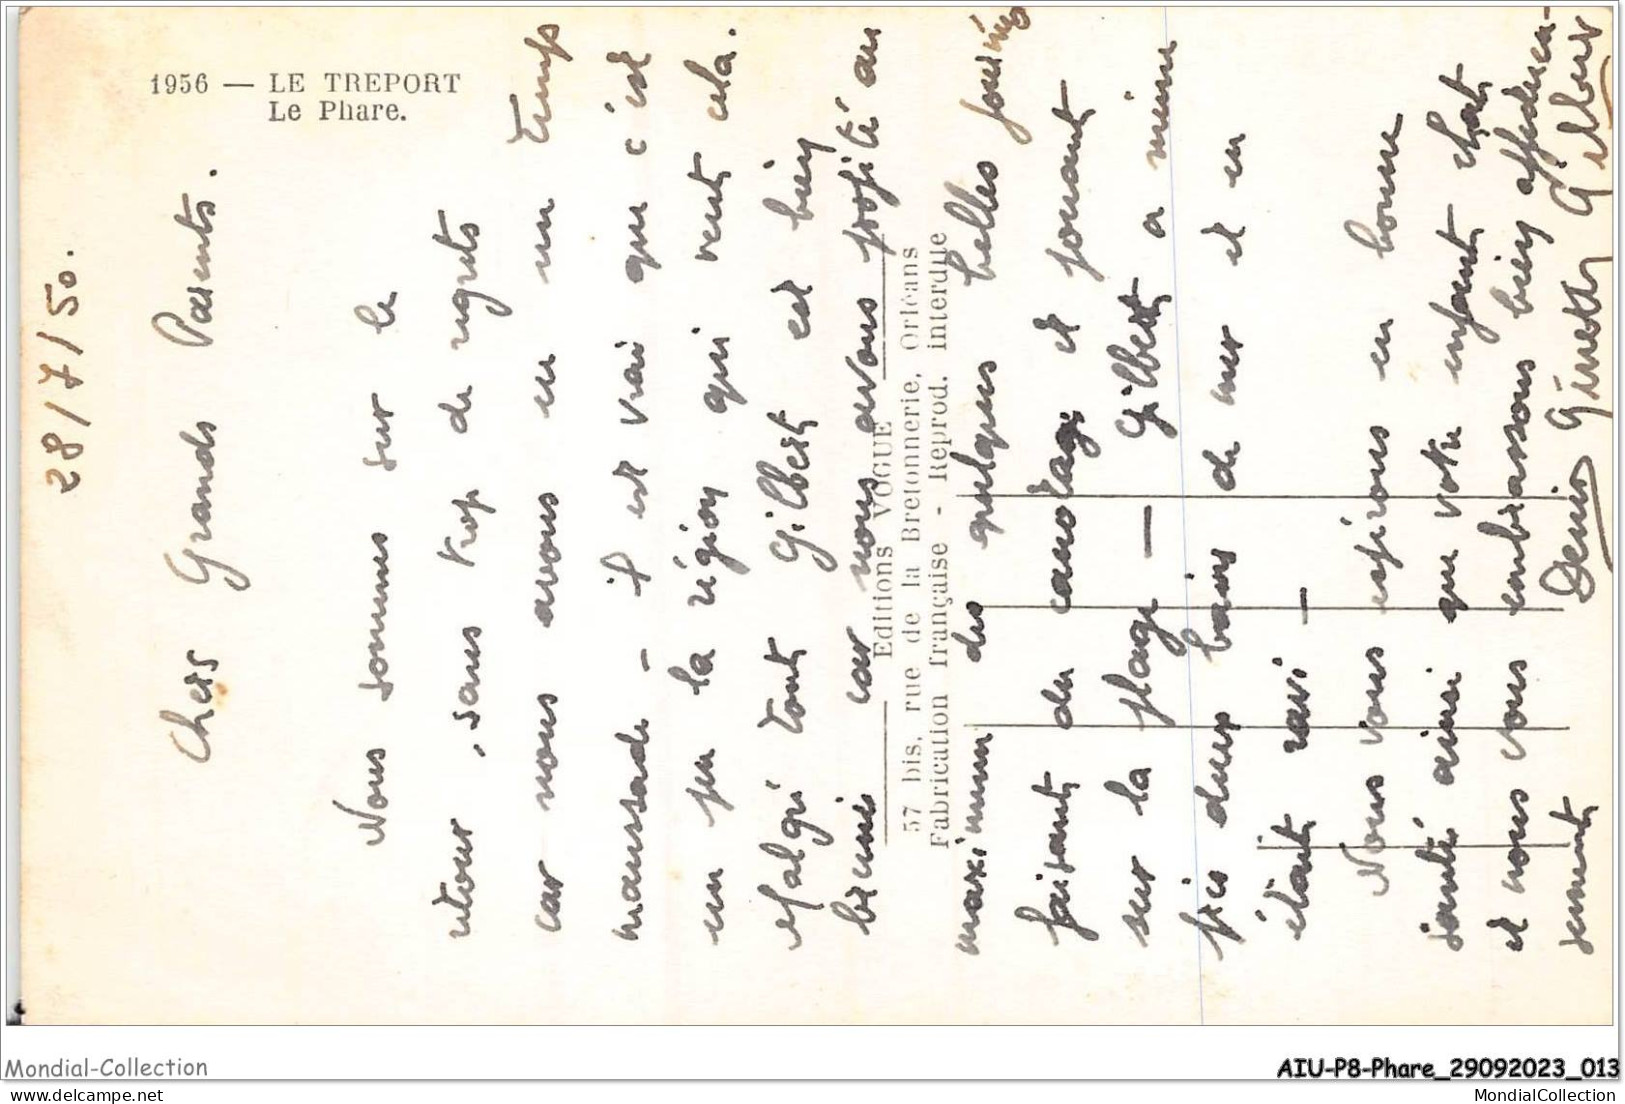 1956 — LE TREPORT
Le Phare.
28/7/50.
Chers Grands Parents.
Nous sommes sur le
retour, sans trop de regrets
car nous avons eu un temps
maussade - il est vrai que c'est
un peu la région qui veut cela.
Malgré tout Gilbert est bien
bruni car nous avons profité au
maximum des quelques belles journées
faisant du canotage et jouant
sur la plage — Gilbert a même
pris deux bains de mer et en
était ravi —
Nous vous espérons en bonne
santé ainsi que votre enfant chat
et nous vous embrassons bien affectueu-
sement
Denis Ginette Gilbert
Editions VOGUE
57 bis, rue de la Bretonnerie, Orléans
Fabrication française - Reprod. interdite
Mondial-Collection
AIU-P8-Phare_29092023_013
delcampe.net
MondialCollection